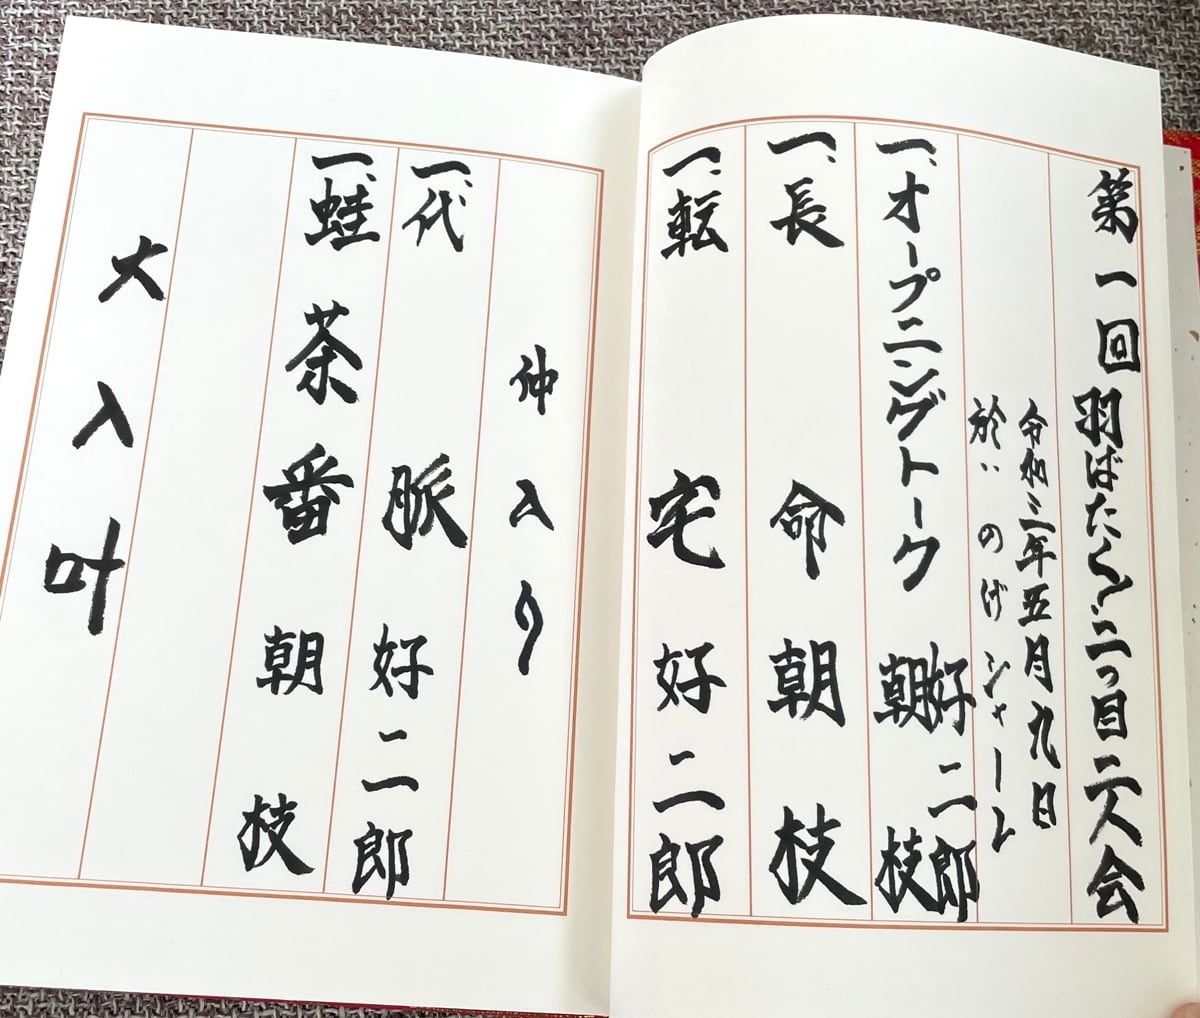 第一回羽ばたく!二つ目二人会
令和三年五月九日
於:のげシャーレ
一、オープニングトーク 好二郎
朝枝
一、長命 朝枝
一、転宅 好二郎
仲入り
一、代脈 好二郎
一、蛙茶番 朝枝
大入叶